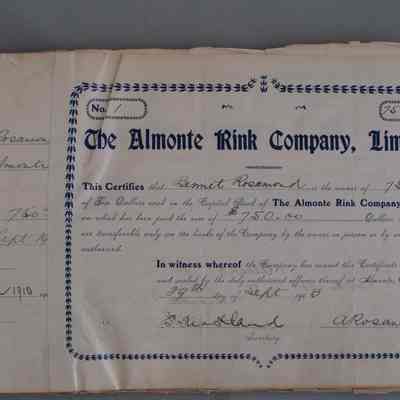 No. 1
75
The Almonte Rink Company, Lim
This Certifies that Bennet Rosamond is the owner of 75
of Ten Dollars each in the Capital Stock of The Almonte Rink Company
on which has been paid the sum of $750.00 Dollars
are transferable only on the books of the Company by the owner in person or by
endorsed.
In witness whereof the Company has caused this Certificate
and sealed by its duly authorized officers thereof at Almonte,
29th day of Sept 190
Secretary
750
Sept
1910